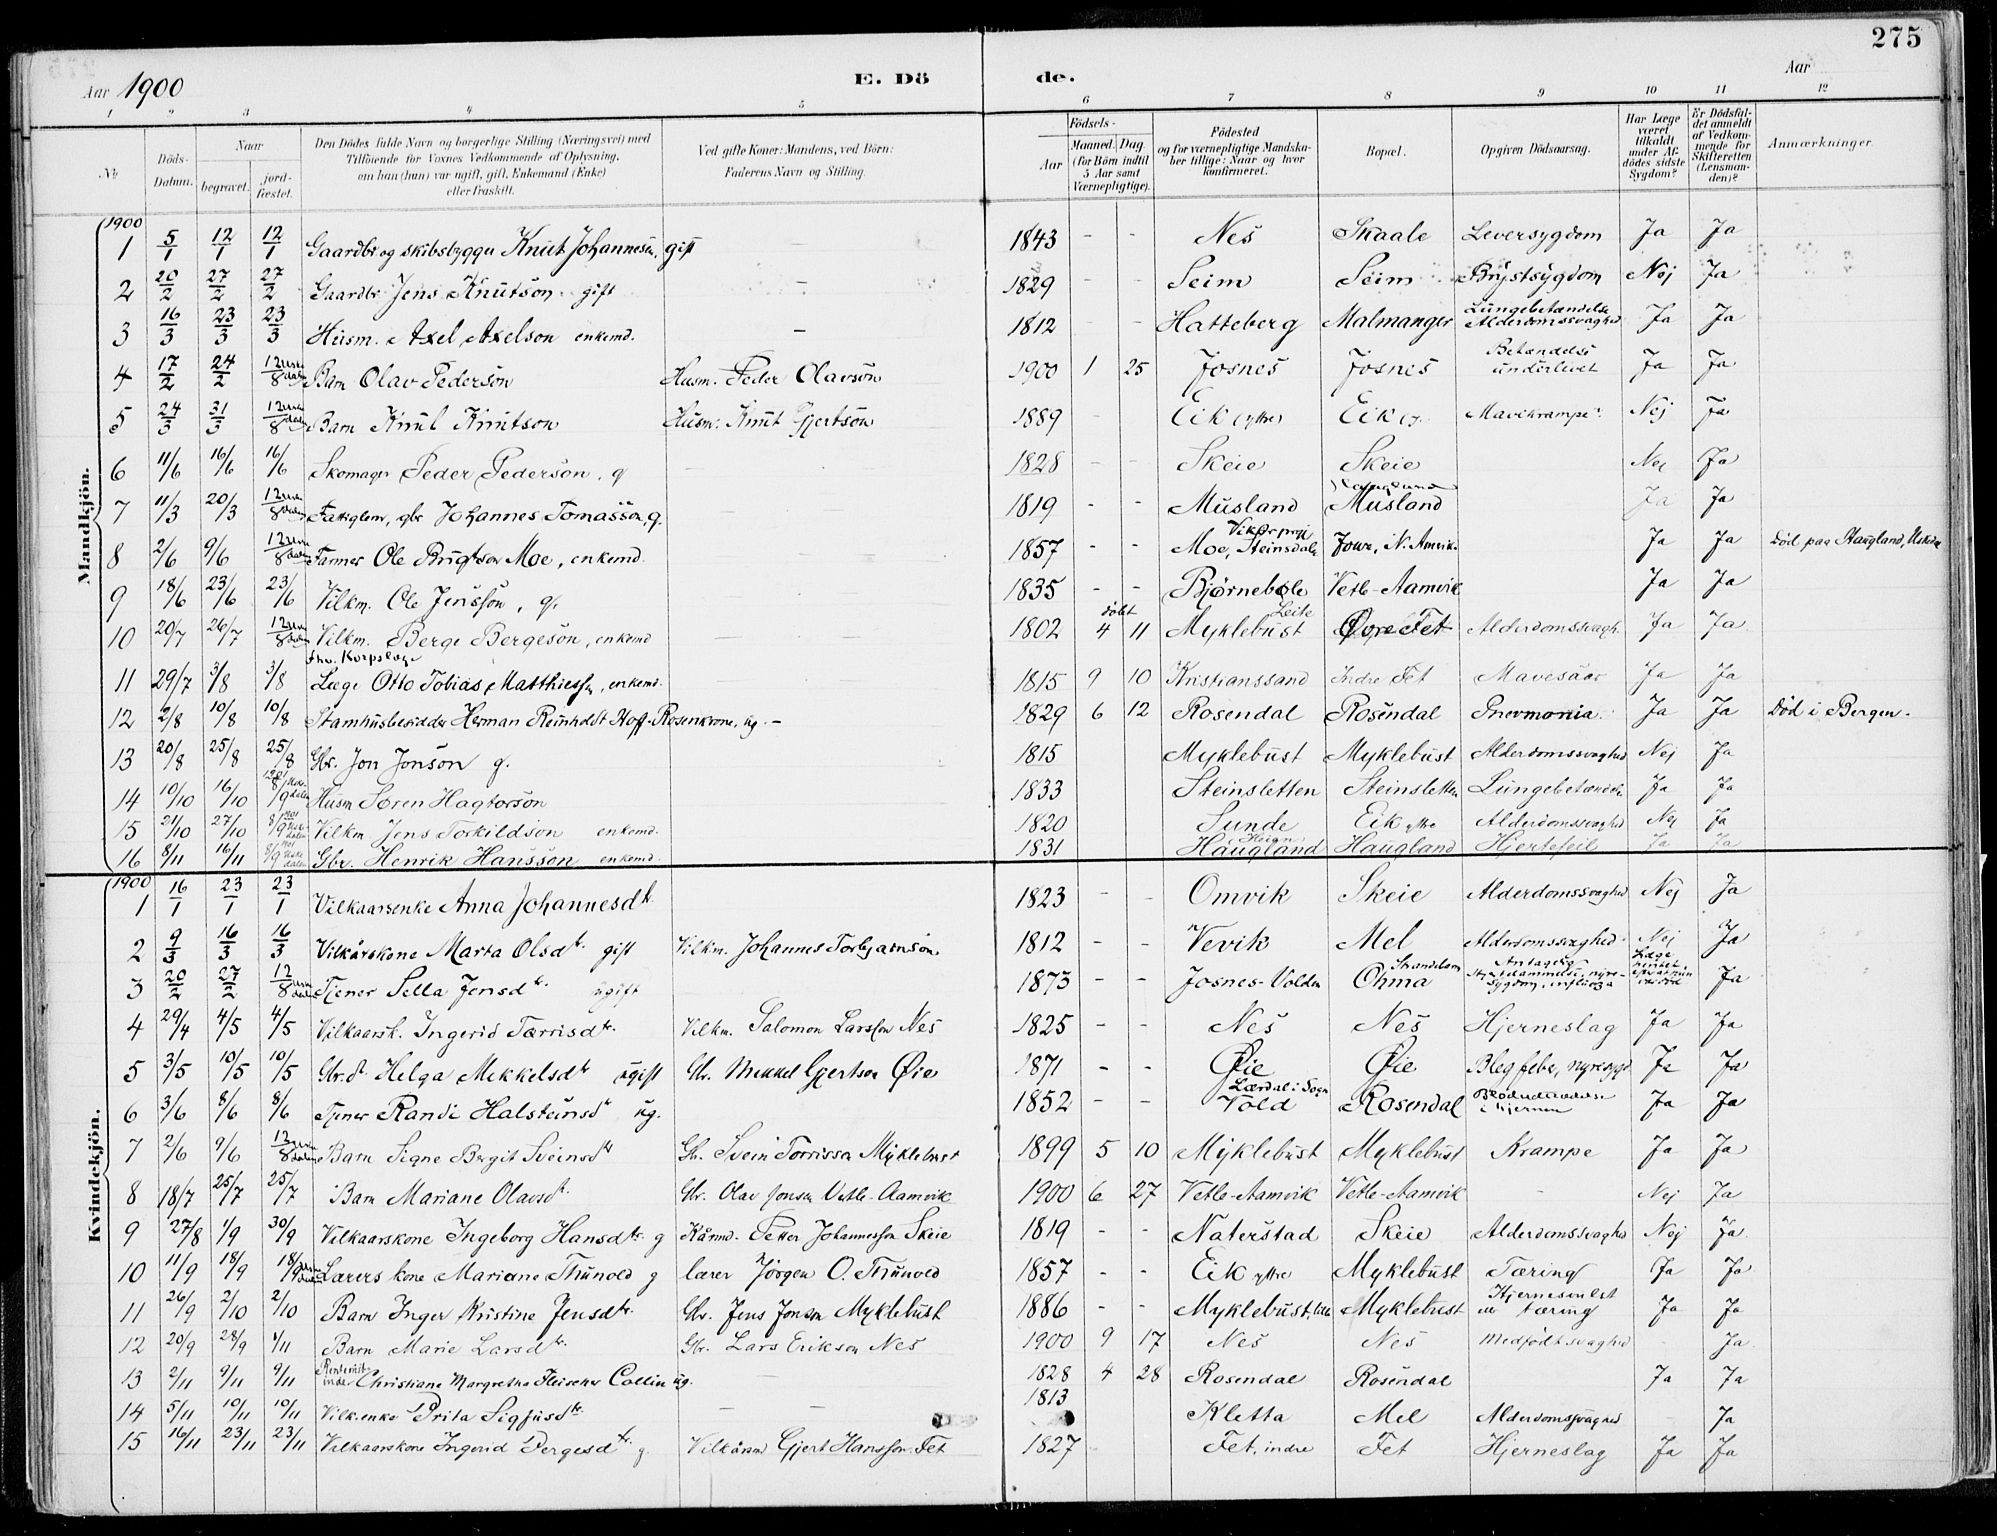 275
Aar 1900 E. Dö de. Aar
1 2 3 4 5 6 7 8 9 10 11 12
No
Döds-Datum.
Naar begravet. jordfæstet.
Den Dödes fulde Navn og borgerlige Stilling (Næringsvei) med Tilföiende for Voxnes Vedkommende af Oplysning, om han (hun) var ugift, gift, Enkemand (Enke) eller fraskilt.
Ved gifte Koner: Mandens, ved Börn: Faderens Navn og Stilling.
Födsels- Aar Maaned. Dag. (for Börn indtil 5 Aar samt Værnepligtige).
Födested og for værnepligtige Mandskaber tillige: Naar og hvor konfirmeret.
Bopæl.
Opgiven Dödsaarsag.
Har Læge været tilkaldt under Afdödes sidste Sygdom?
Er Dödsfaldet anmeldt af Vedkommende for Skifteretten (Lensmanden)?
Anmærkninger.
Mandkjön.
1900
1 5/1 12/1 12/1 Gaardbr. og skibsbygger Knut Johannesön, gift 1843 - - Nes Skaale Leversygdom Ja Ja
2 20/2 27/2 27/2 Gaardbr. Jens Knutson. gift — 1829 - - Seim Seim Brystsygdom Nej Ja
3 16/3 23/3 23/3 Husm. Axel Axelson enkemd. — 1812 - - Hatteberg Malmanger Lungebetændelse Alderdomssvaghed Ja Ja
4 17/2 24/2 12/8 Barn Olav Pederson Husm. Peder Olavsön 1900 1 25 Josnes Josnes Betændelse underlivet Ja Ja
5 24/3 31/3 12/8 Barn Knut Knutson Husm. Knut Gjertsön 1889 - Eik (ytre) Eik (y. Mavekrampe Nej Ja
6 11/6 16/6 16/6 Skomager Peder Pederson, g 1828 - - Skeie Skeie Nej Ja
7 11/3 20/3 12/8 Fattiglem, gbr Johannes Tomassön, g. 1819 - - Musland Musland Ja Ja
8 2/6 9/6 12/8 Farmer Ole Brigtson Moe, enkemd. 1857 - - Moe, Steinsdal, Vikør prgj Iowa, N. Amerik. Ja Ja Död paa Haugland, Uskedal
9 18/6 23/6 23/6 Vilkm. Ole Jensson, g. 1835 - - Bjørnebole Vetle-Aamvik Ja Ja
10 20/7 26/7 12/8 Vilkm. Berge Bergeson, enkemd 1802 döbt 4 11 Myklebust Leite Øvre Fet Alderdomssvagh. Ja Ja
11 29/7 3/8 3/8 fhv. Korpslæge Læge Otto Tobias Matthiessen, enkemd. 1815 9 10 Kristianssand Indre Fet Mavesaar Ja Ja
12 2/8 10/8 10/8 Stamhusbesidder Herman Reinholdt Hoff-Rosenkrone, ug. - 1829 6 12 Rosendal Rosendal Pnevmonia. Ja Ja Död i Bergen.
13 20/8 25/8 25/8 Gbr. Jon Jonson g. 1815 Myklebust Myklebust Alderdomssvaghed Nej Ja
14 10/10 16/10 8/9 1901 Husm Søren Hagtorson 1833 Steinsletten Steinsletten Lungebetændelse Ja Ja
15 21/10 27/10 8/9 1901 Vilkm Jens Torkildson enkemd. 1820 Sunde Eik ytre Alderdomssvaghed Nej Ja
16 8/11 16/11 8/9 1901 Gbr. Henrik Hansson enkemd. 1831 Haugland Haugland Hjertefeil Ja Ja
Kvindekjön.
1900
1 16/1 23/1 23/1 Vilkaarsenke Anna Johannesdtr. 1823 - - Omvik Skeie Alderdomssvaghed Nej Ja
2 9/3 16/3 16/3 Vilkårskone Marta Olsdtr. gift Vilkm. Johannes Torbjørnson 1812 - - Vevik Mel Alderdomssvaghed Nej Ja
3 20/2 27/2 12/8 Tjener Sella Jensdtr. ugift 1873 - - Josnes-Volden Ohma Strandebarm sygdom, influenza Ja
4 29/4 4/5 4/5 Vilkaarsk. Ingerid Tærrisdtr. Vilkm. Salomon Larsson Nes 1825 - - Nes Nes Hjerneslag Ja Ja
5 3/5 10/5 10/5 Gbr.dt Helga Mikkelsdtr ugift Gbr. Mikkel Gjertson Øie 1871 - - Øie Øie Blegfeber, nyresygd Ja Ja
6 3/6 8/6 8/6 Tjener Randi Halsteinsdtr ug. 1852 - - Lærdal i Sogn Vold Rosendal i hjernen Ja Ja
7 2/6 9/6 12/8 Barn Signe Bergit Sveinsdtr Gbr. Svein Torrisson Myklebust 1899 5 10 Myklebust Myklebust Krampe Ja Ja
8 18/7 25/7 25/7 Barn Mariane Olavsdtr. Gbr. Olav Jonson Vetle-Aamvik 1900 6 27 Vetle-Aamvik Vetle-Aamvik - Nej Ja
9 27/8 1/9 30/9 Vilkaarskone Ingeborg Hansdtr. g Kårmd. Petter Johannesson Skeie 1819 - - Naterstad Skeie Alderdomssvaghed Nej Ja
10 11/9 18/9 18/9 Lærers kone Mariane Thunold g lærer Jörgen O. Thunold 1857 - - Eik ytre Myklebust Tæring Ja Ja
11 26/9 2/10 2/10 Barn Inger Kristine Jensdtr. Gbr. Jens Jonson Myklebust 1886 - - Myklebust, Myklebust Hjernesvulst tæring Ja Ja
12 20/9 28/9 1/11 Barn Marie Larsdtr. Gbr. Lars Erikson Nes 1900 9 17 Nes Nes Medfödt svaghed - Ja
13 2/11 9/11 9/11 Christiane Margretha Fleischer Collin ug. 1828 4 28 Rosendal Rosendal Ja Ja
14 5/11 10/11 10/11 Vilk.enke Brita Sigfusdtr. — — 1813 Kletta Mel Alderdomssvaghed - Ja
15 16/11 23/11 23/11 Vilkaarskone Ingerid Bergesdtr. g Vilkårmd Gjert Hansson Fet 1827 - Fet, indre Fet Hjerneslag Ja Ja